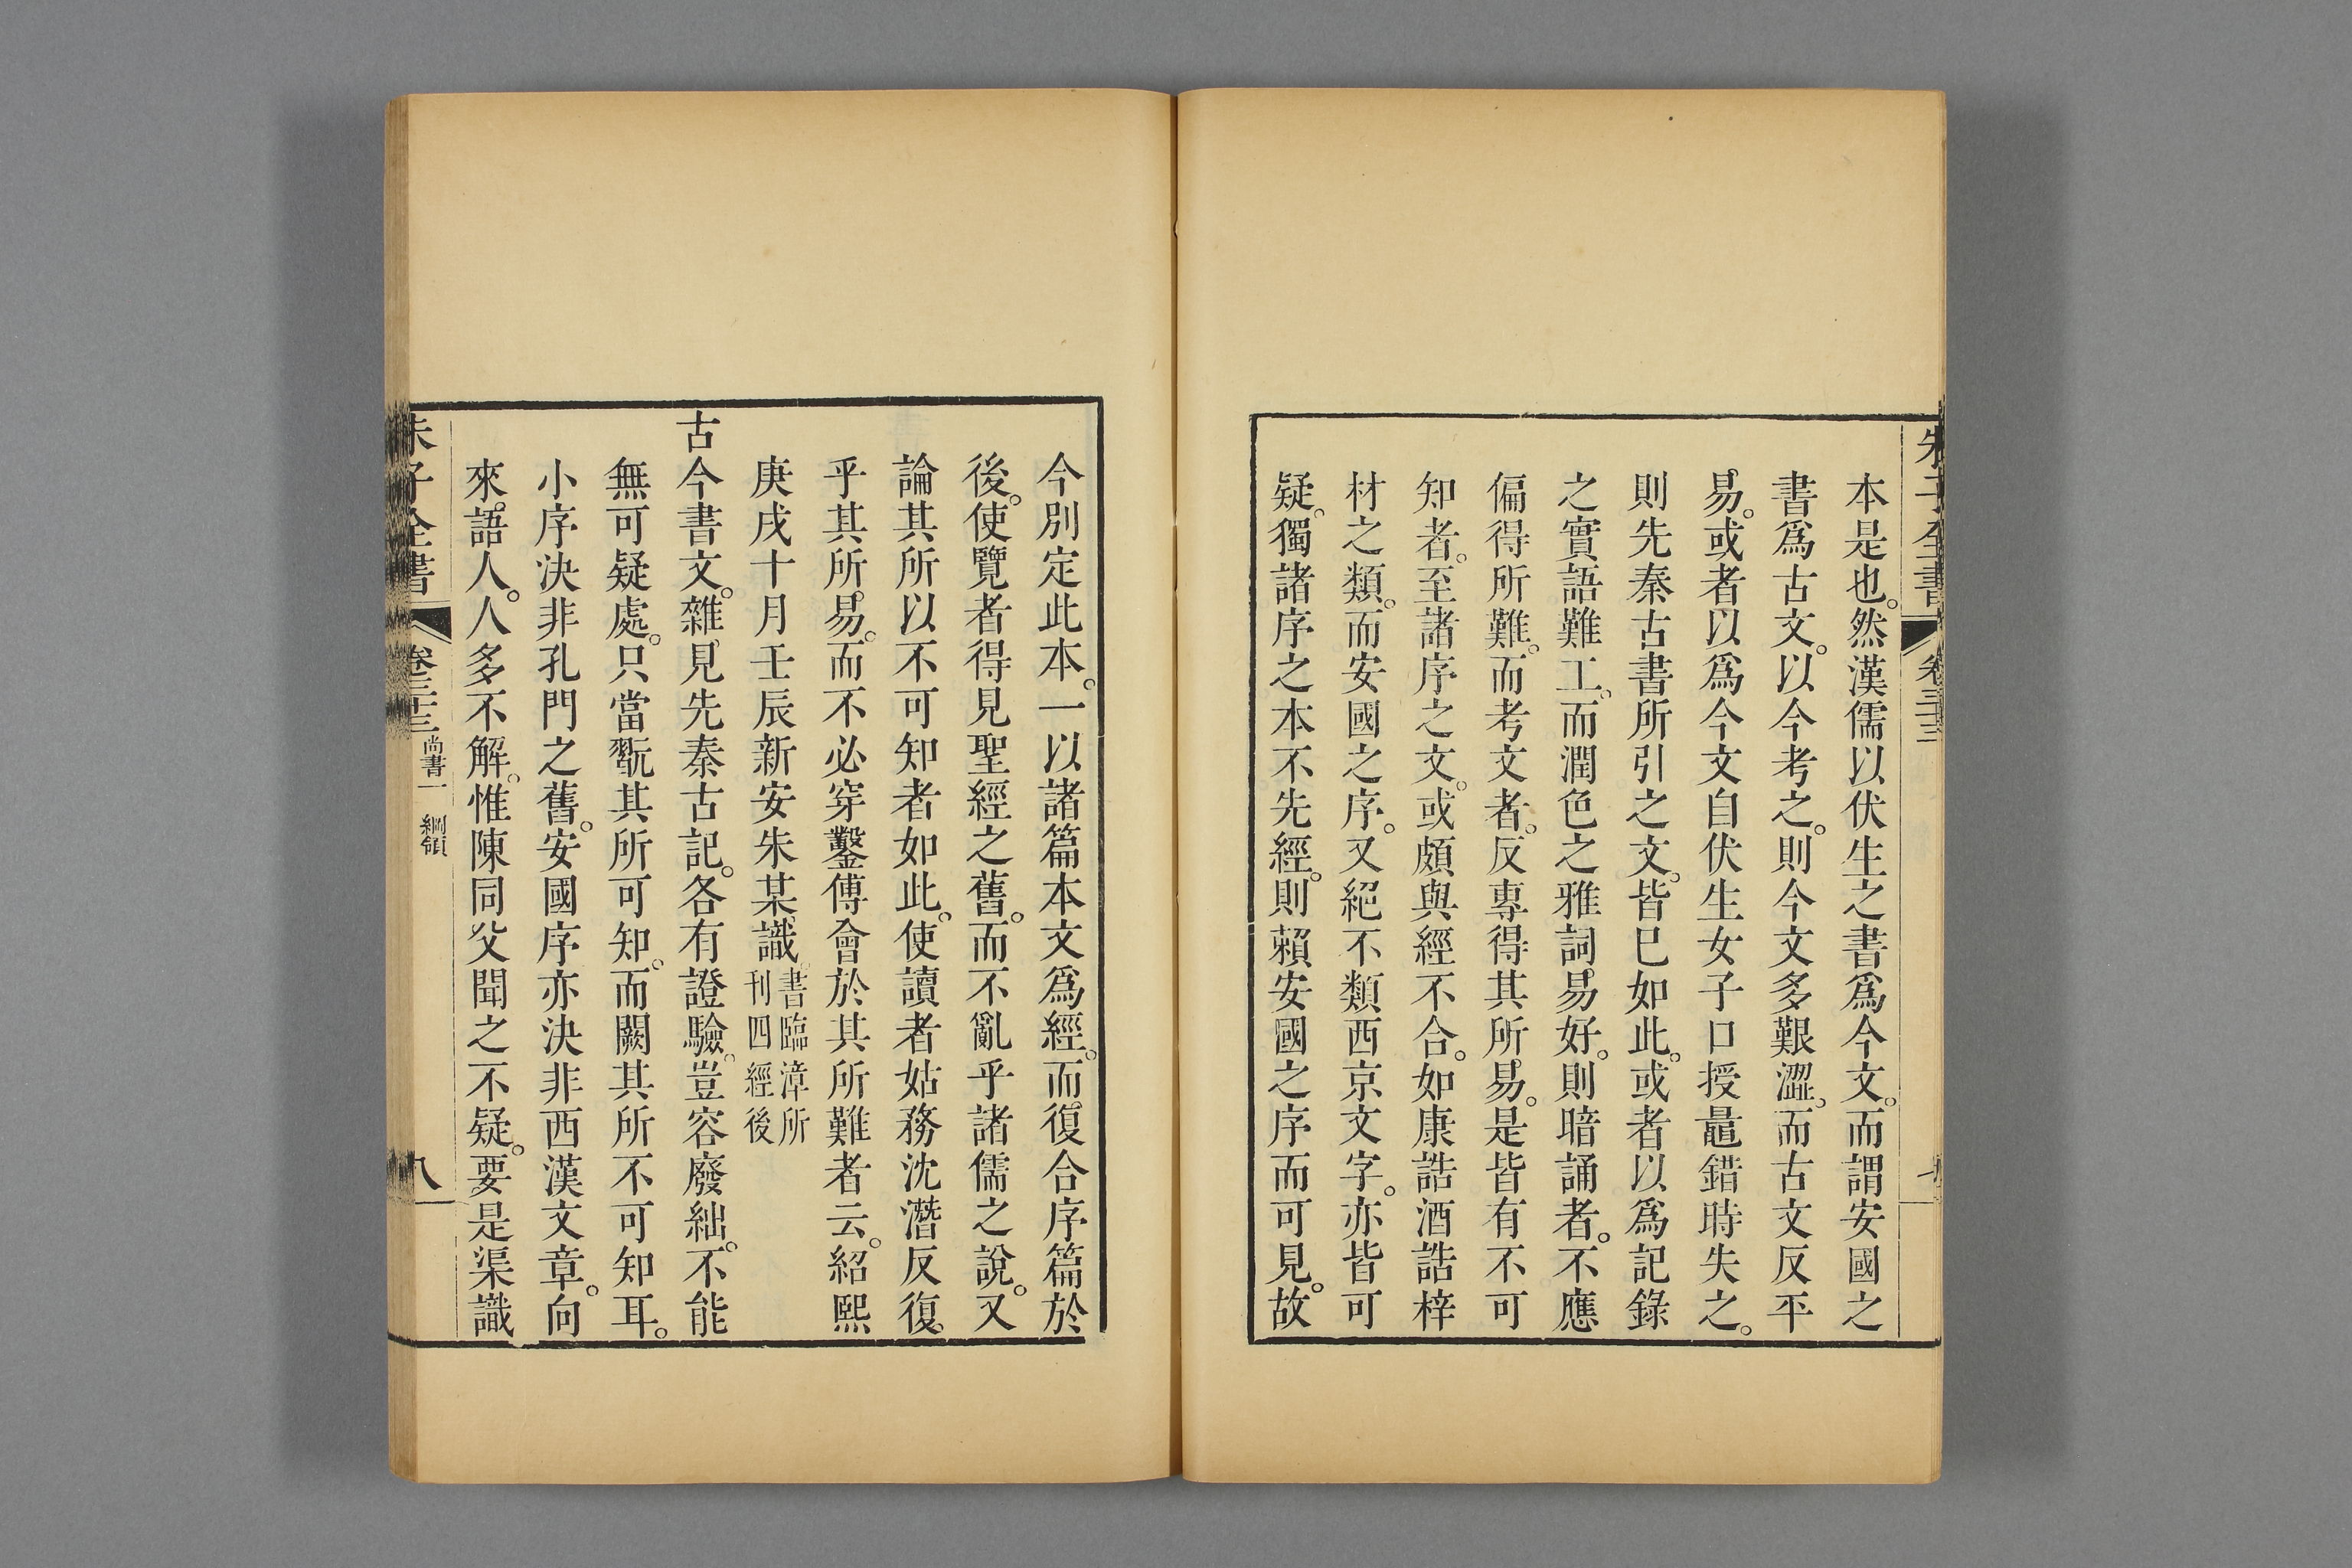 朱子全書 卷三十三
本是也。然漢儒以伏生之書爲今文。而謂安國之
書爲古文。以今考之。則今文多艱澀。而古文反平
易。或者以爲今文自伏生女子口授鼂錯時失之。
則先秦古書所引之文。皆已如此。或者以爲記錄
之實語難工。而潤色之雅詞易好。則暗誦者。不應
偏得所難。而考文者。反專得其所易。是皆有不可
知者。至諸序之文。或頗與經不合。如康誥酒誥梓
材之類。而安國之序。又絕不類西京文字。亦皆可
疑。獨諸序之本不先經。則賴安國之序而可見。故
今別定此本。一以諸篇本文爲經。而復合序篇於
後。使覽者得見聖經之舊。而不亂乎諸儒之說。又
論其所以不可知者如此。使讀者姑務沈潛反復
乎其所易。而不必穿鑿傅會於其所難者云。紹熙
庚戌十月壬辰新安朱某識。書臨漳所
刊四經後
古今書文。雜見先秦古記。各有證驗。豈容廢絀。不能
無可疑處。只當翫其所可知。而闕其所不可知耳。
小序決非孔門之舊。安國序亦決非西漢文章。向
來語人。人多不解。惟陳同父聞之不疑。要是渠識
朱子全書 卷三十三 尚書一 綱領 八